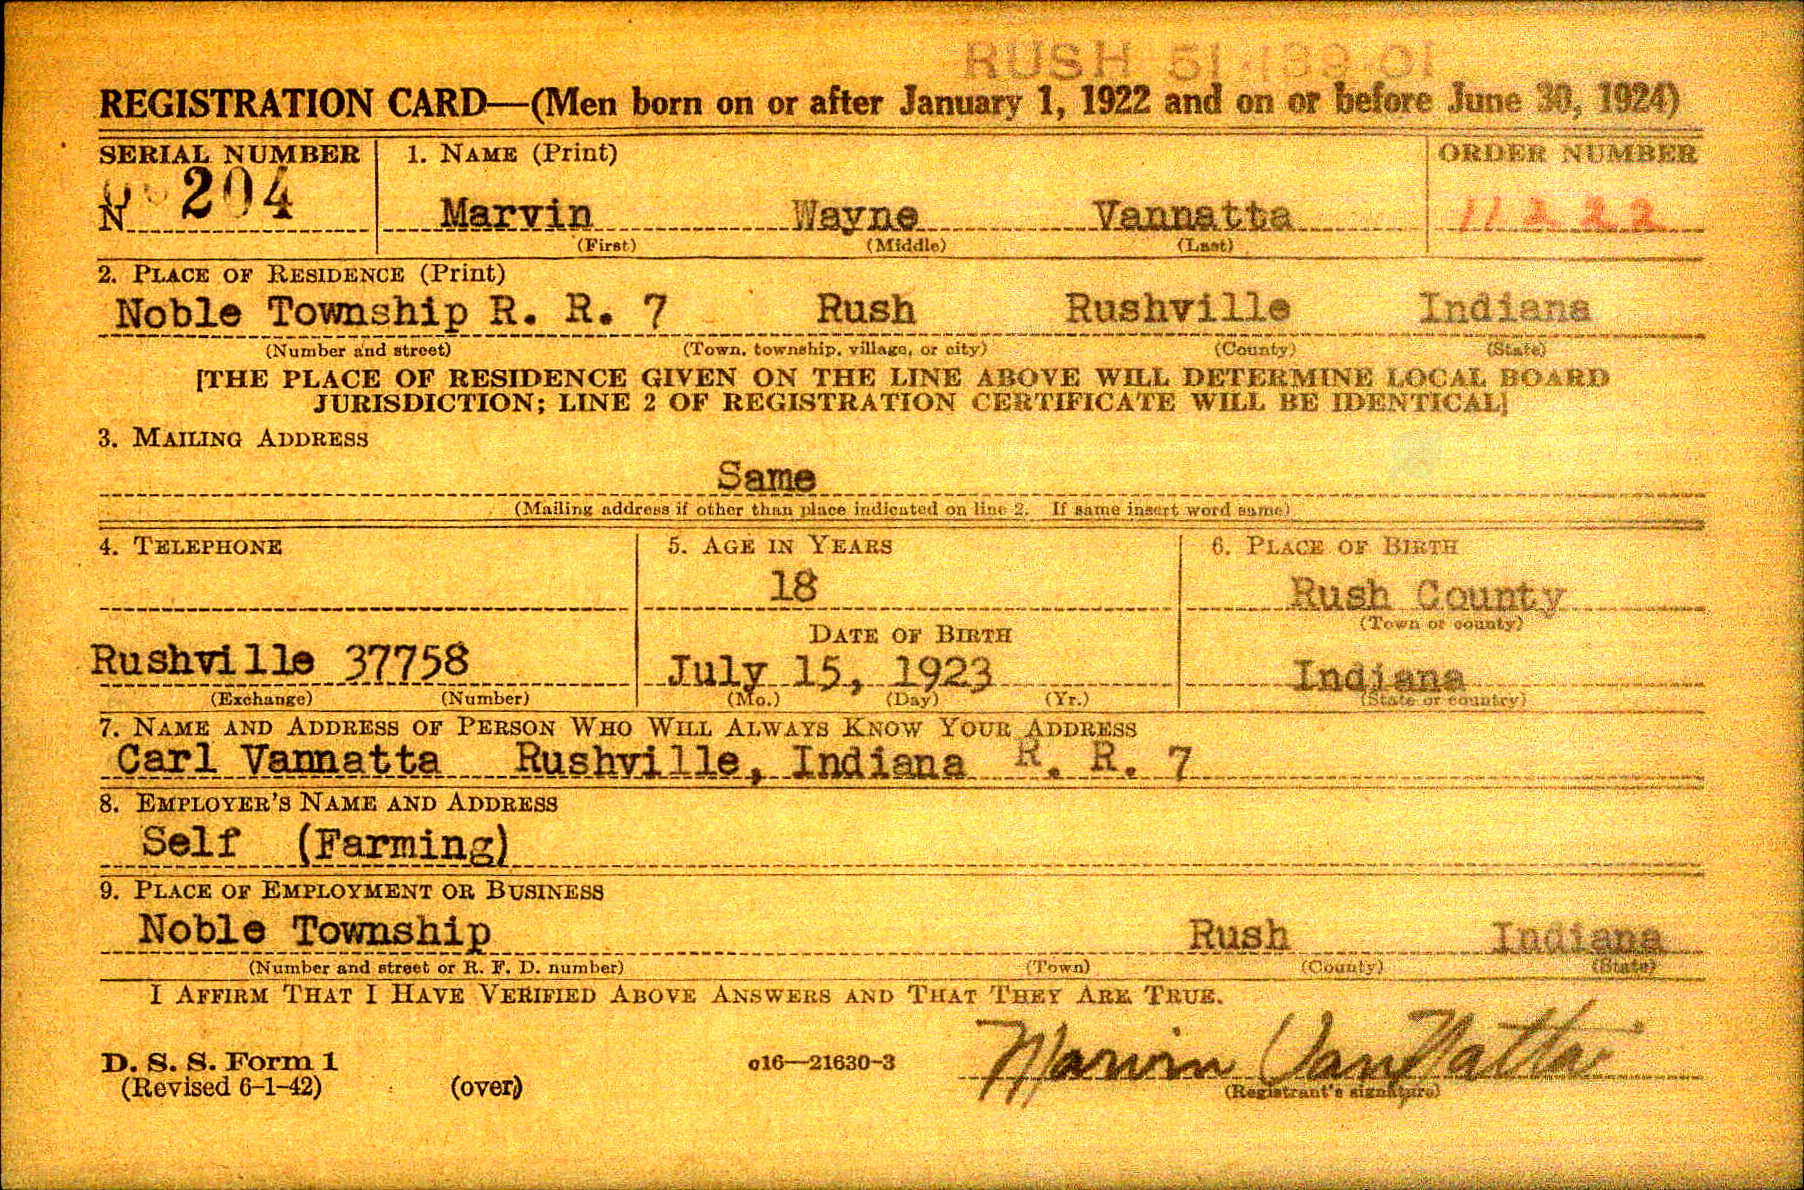 RUSH 51 139 01
REGISTRATION CARD—(Men born on or after January 1, 1922 and on or before June 30, 1924)
SERIAL NUMBER 1. NAME (Print) ORDER NUMBER
N 204 Marvin Wayne Vannatta 11222
(First) (Middle) (Last)
2. PLACE OF RESIDENCE (Print)
Noble Township R. R. 7 Rush Rushville Indiana
(Number and street) (Town, township, village, or city) (County) (State)
[THE PLACE OF RESIDENCE GIVEN ON THE LINE ABOVE WILL DETERMINE LOCAL BOARD
JURISDICTION; LINE 2 OF REGISTRATION CERTIFICATE WILL BE IDENTICAL]
3. MAILING ADDRESS
Same
(Mailing address if other than place indicated on line 2. If same insert word same)
4. TELEPHONE 5. AGE IN YEARS 6. PLACE OF BIRTH
18 Rush County
(Town or county)
DATE OF BIRTH
Rushville 37758 July 15, 1923 Indiana
(Exchange) (Number) (Mo.) (Day) (Yr.) (State or country)
7. NAME AND ADDRESS OF PERSON WHO WILL ALWAYS KNOW YOUR ADDRESS
Carl Vannatta Rushville, Indiana R. R. 7
8. EMPLOYER'S NAME AND ADDRESS
Self (Farming)
9. PLACE OF EMPLOYMENT OR BUSINESS
Noble Township Rush Indiana
(Number and street or R. F. D. number) (Town) (County) (State)
I AFFIRM THAT I HAVE VERIFIED ABOVE ANSWERS AND THAT THEY ARE TRUE.
D. S. S. Form 1 o16—21630-3 Marvin VanNatta
(Revised 6-1-42) (over) (Registrant's signature)